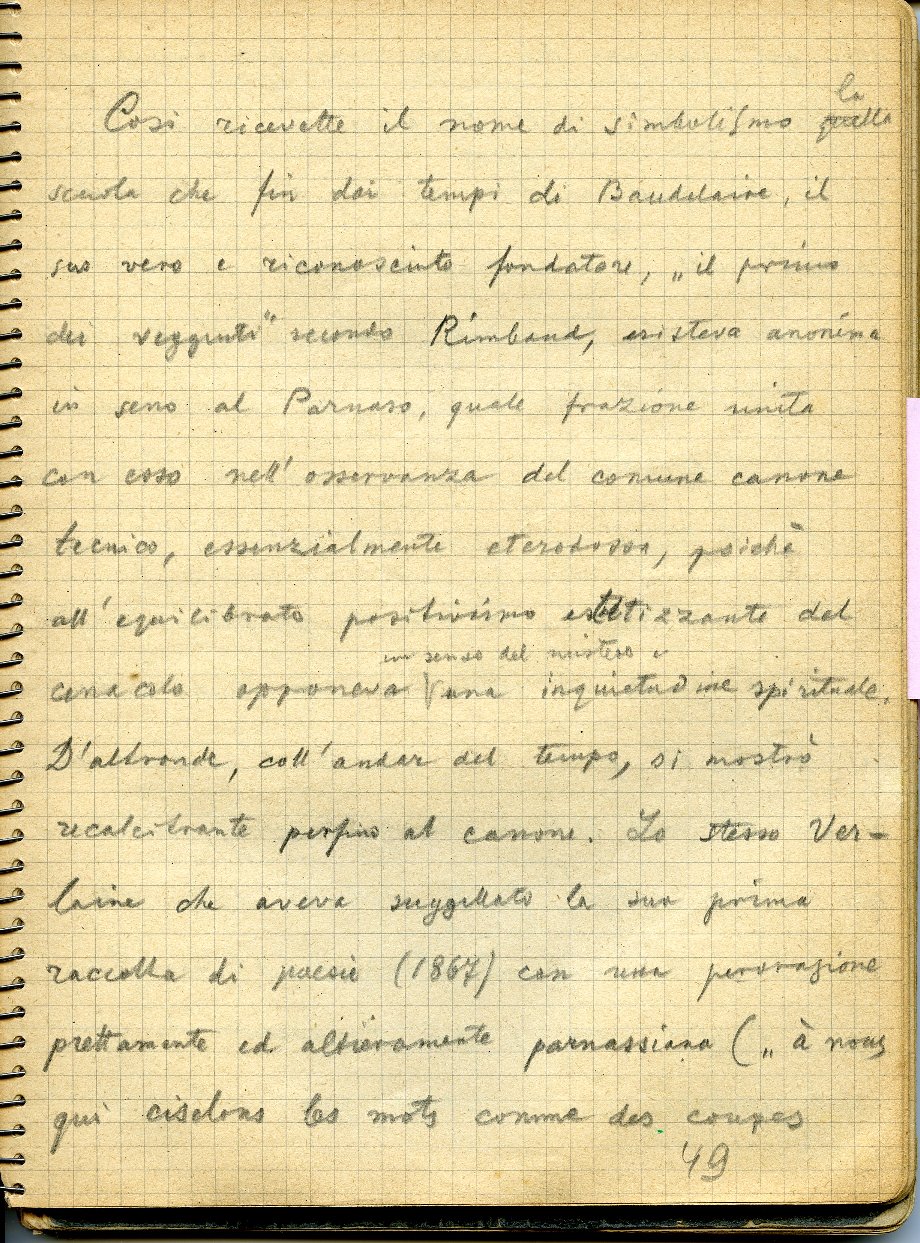 la
Così ricevette il nome di simbolismo quella
scuola che fin dai tempi di Baudelaire, il
suo vero e riconosciuto fondatore, „il primo
dei veggenti" secondo Rimbaud, esisteva anonima
in seno al Parnaso, quale frazione unita
con esso nell'osservanza del comune canone
tecnico, essenzialmente eterodossa, poichè
all'equilibrato positivismo estetizzante del
un senso del mistero e
cenacolo opponeva una inquietudine spirituale.
D'altronde, coll'andar del tempo, si mostrò
recalcitrante perfino al canone. Lo stesso Ver-
laine che aveva suggellato la sua prima
raccolta di poesie (1867) con una perorazione
prettamente ed altieramente parnassiana („à nous
qui ciselons les mots comme des coupes
49